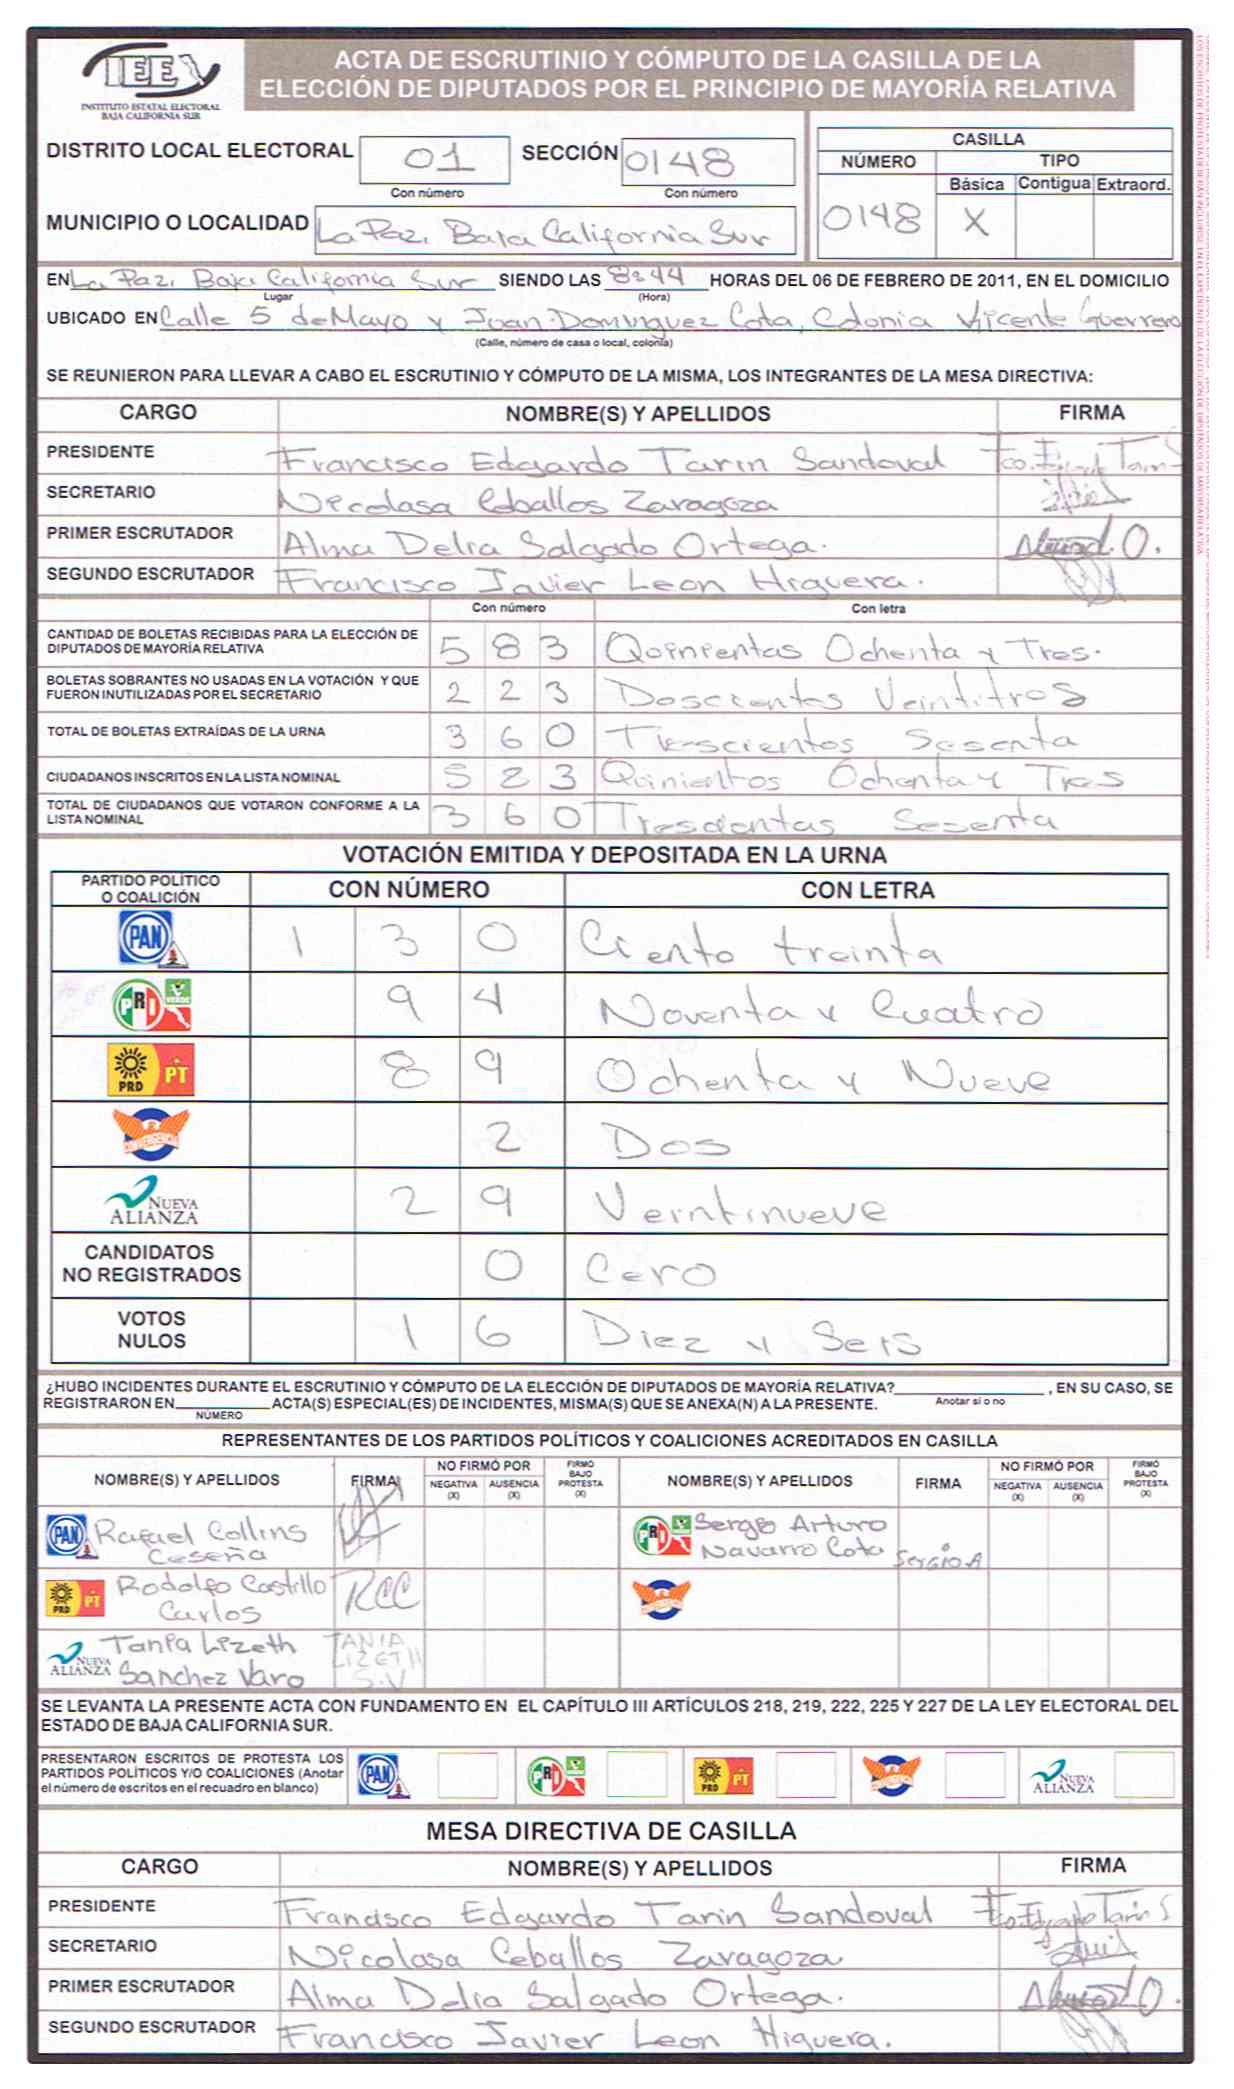 IEE
INSTITUTO ESTATAL ELECTORAL
BAJA CALIFORNIA SUR
ACTA DE ESCRUTINIO Y CÓMPUTO DE LA CASILLA DE LA
ELECCIÓN DE DIPUTADOS POR EL PRINCIPIO DE MAYORÍA RELATIVA
DISTRITO LOCAL ELECTORAL 01 SECCIÓN 0148
Con número Con número
MUNICIPIO O LOCALIDAD La Paz, Baja California Sur
CASILLA
NÚMERO TIPO
Básica Contigua Extraord.
0148 X
EN La Paz, Baja California Sur SIENDO LAS 8:44 HORAS DEL 06 DE FEBRERO DE 2011, EN EL DOMICILIO
Lugar (Hora)
UBICADO EN Calle 5 de Mayo y Juan Dominguez Cota, Colonia Vicente Guerrero
(Calle, número de casa o local, colonia)
SE REUNIERON PARA LLEVAR A CABO EL ESCRUTINIO Y CÓMPUTO DE LA MISMA, LOS INTEGRANTES DE LA MESA DIRECTIVA:
CARGO NOMBRE(S) Y APELLIDOS FIRMA
PRESIDENTE Francisco Edgardo Tarin Sandoval
SECRETARIO Nicolasa Ceballos Zaragoza
PRIMER ESCRUTADOR Alma Delia Salgado Ortega.
SEGUNDO ESCRUTADOR Francisco Javier Leon Higuera.
Con número Con letra
CANTIDAD DE BOLETAS RECIBIDAS PARA LA ELECCIÓN DE
DIPUTADOS DE MAYORÍA RELATIVA 5 8 3 Qoinientas Ochenta y Tres.
BOLETAS SOBRANTES NO USADAS EN LA VOTACIÓN Y QUE
FUERON INUTILIZADAS POR EL SECRETARIO 2 2 3 Doscientos Veintitres
TOTAL DE BOLETAS EXTRAÍDAS DE LA URNA 3 6 0 Trescientos Sesenta
CIUDADANOS INSCRITOS EN LA LISTA NOMINAL 5 2 3 Quinientos Ochenta y Tres
TOTAL DE CIUDADANOS QUE VOTARON CONFORME A LA
LISTA NOMINAL 3 6 0 Trescientas Sesenta
VOTACIÓN EMITIDA Y DEPOSITADA EN LA URNA
PARTIDO POLÍTICO
O COALICIÓN CON NÚMERO CON LETRA
PAN 1 3 0 Ciento treinta
PRI VERDE 9 4 Noventa y Cuatro
PRD PT 8 9 Ochenta y Nueve
CONVERGENCIA 2 Dos
NUEVA ALIANZA 2 9 Veintinueve
CANDIDATOS
NO REGISTRADOS 0 Cero
VOTOS
NULOS 1 6 Diez y Seis
¿HUBO INCIDENTES DURANTE EL ESCRUTINIO Y CÓMPUTO DE LA ELECCIÓN DE DIPUTADOS DE MAYORÍA RELATIVA? , EN SU CASO, SE
Anotar sí o no
REGISTRARON EN ACTA(S) ESPECIAL(ES) DE INCIDENTES, MISMA(S) QUE SE ANEXA(N) A LA PRESENTE.
NÚMERO
REPRESENTANTES DE LOS PARTIDOS POLÍTICOS Y COALICIONES ACREDITADOS EN CASILLA
NOMBRE(S) Y APELLIDOS FIRMA NO FIRMÓ POR NEGATIVA (X) AUSENCIA (X) FIRMÓ BAJO PROTESTA (X) NOMBRE(S) Y APELLIDOS FIRMA NO FIRMÓ POR NEGATIVA (X) AUSENCIA (X) FIRMÓ BAJO PROTESTA (X)
PAN Rafael Collins
Ceseña
PRI Sergio Arturo
Navarro Cota Sergio A
PRD PT Rodolfo Castillo
Carlos RCC
NUEVA ALIANZA Tania Lizeth
Sanchez Varo TANIA
LIZETH
S.V
SE LEVANTA LA PRESENTE ACTA CON FUNDAMENTO EN EL CAPÍTULO III ARTÍCULOS 218, 219, 222, 225 Y 227 DE LA LEY ELECTORAL DEL
ESTADO DE BAJA CALIFORNIA SUR.
PRESENTARON ESCRITOS DE PROTESTA LOS
PARTIDOS POLÍTICOS Y/O COALICIONES (Anotar
el número de escritos en el recuadro en blanco)
PAN PRI PRD PT NUEVA ALIANZA
MESA DIRECTIVA DE CASILLA
CARGO NOMBRE(S) Y APELLIDOS FIRMA
PRESIDENTE Francisco Edgardo Tarin Sandoval
SECRETARIO Nicolasa Ceballos Zaragoza
PRIMER ESCRUTADOR Alma Delia Salgado Ortega.
SEGUNDO ESCRUTADOR Francisco Javier Leon Higuera.